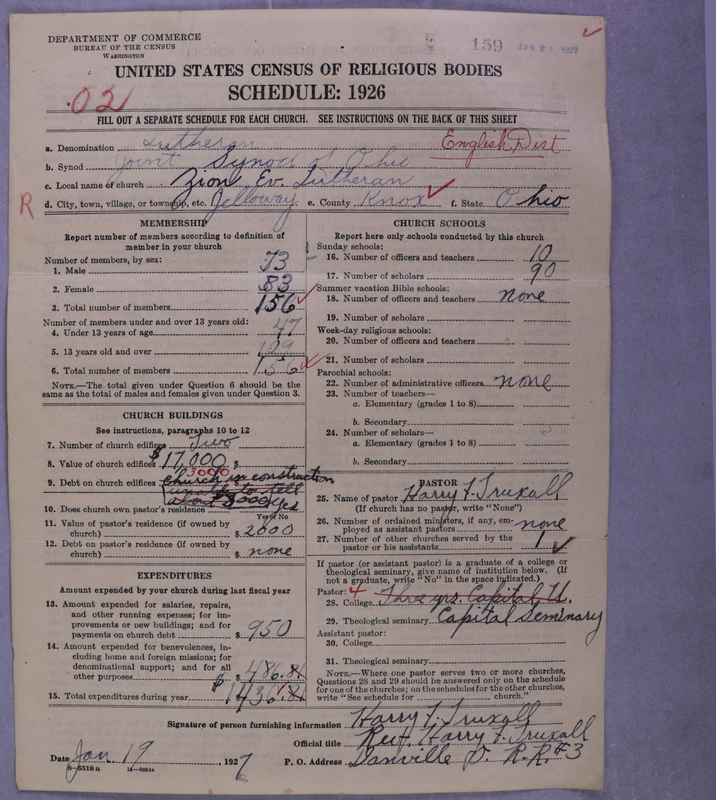 DEPARTMENT OF COMMERCE
BUREAU OF THE CENSUS
WASHINGTON
159 JAN 21 1927
UNITED STATES CENSUS OF RELIGIOUS BODIES
SCHEDULE: 1926
.02
FILL OUT A SEPARATE SCHEDULE FOR EACH CHURCH. SEE INSTRUCTIONS ON THE BACK OF THIS SHEET
a. Denomination Lutheran English Dist
b. Synod Joint Synod of Ohio
c. Local name of church Zion Ev. Lutheran
R d. City, town, village, or township, etc. Jelloway e. County Knox f. State Ohio
MEMBERSHIP
Report number of members according to definition of
member in your church
Number of members, by sex:
1. Male 73
2. Female 83
3. Total number of members 156
Number of members under and over 13 years old:
4. Under 13 years of age 47
5. 13 years old and over 109
6. Total number of members 156
NOTE.—The total given under Question 6 should be the
same as the total of males and females given under Question 3.
CHURCH BUILDINGS
See instructions, paragraphs 10 to 12
7. Number of church edifices Two
8. Value of church edifices $17,000
3000
9. Debt on church edifices church in construction
unable to tell
about $3000
10. Does church own pastor's residence Yes
Yes or No
11. Value of pastor's residence (if owned by
church) $ 2000
12. Debt on pastor's residence (if owned by
church) $ none
EXPENDITURES
Amount expended by your church during last fiscal year
13. Amount expended for salaries, repairs,
and other running expenses; for im-
provements or new buildings; and for
payments on church debt $ 950
14. Amount expended for benevolences, in-
cluding home and foreign missions; for
denominational support; and for all
other purposes $ 486.81
15. Total expenditures during year $1436.81
CHURCH SCHOOLS
Report here only schools conducted by this church
Sunday schools:
16. Number of officers and teachers 10
17. Number of scholars 90
Summer vacation Bible schools:
18. Number of officers and teachers none
19. Number of scholars
Week-day religious schools:
20. Number of officers and teachers
21. Number of scholars
Parochial schools:
22. Number of administrative officers none
23. Number of teachers—
a. Elementary (grades 1 to 8)
b. Secondary
24. Number of scholars—
a. Elementary (grades 1 to 8)
b. Secondary
PASTOR
25. Name of pastor Harry F. Truxall
(If church has no pastor, write "None")
26. Number of ordained ministers, if any, em-
ployed as assistant pastors none
27. Number of other churches served by the
pastor or his assistants 1
If pastor (or assistant pastor) is a graduate of a college or
theological seminary, give name of institution below. (If
not a graduate, write "No" in the space indicated.)
Pastor:
28. College Three yrs. Capital U.
29. Theological seminary Capital Seminary
Assistant pastor:
30. College
31. Theological seminary
NOTE.—Where one pastor serves two or more churches,
Questions 28 and 29 should be answered only on the schedule
for one of the churches; on the schedules for the other churches,
write "See schedule for church."
Signature of person furnishing information Harry F. Truxall
Official title Rev. Harry F. Truxall
Date Jan 19, 1927 P. O. Address Danville O. R.R. #3
8-5518a